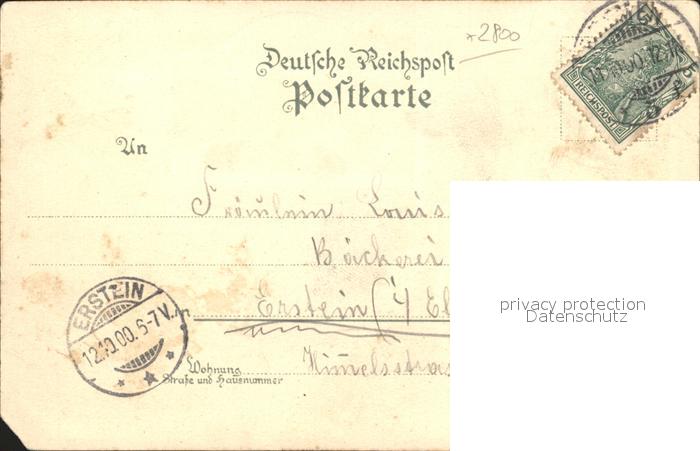 *2800
Deutsche Reichspost
Postkarte
REICHSPOST
An
Fräulein Louis
Bäckerei
Erstein i/ El
in
ERSTEIN
12.10.00.6-7V.
Wohnung
Straße und Hausnummer
Himelsstras
privacy protection
Datenschutz